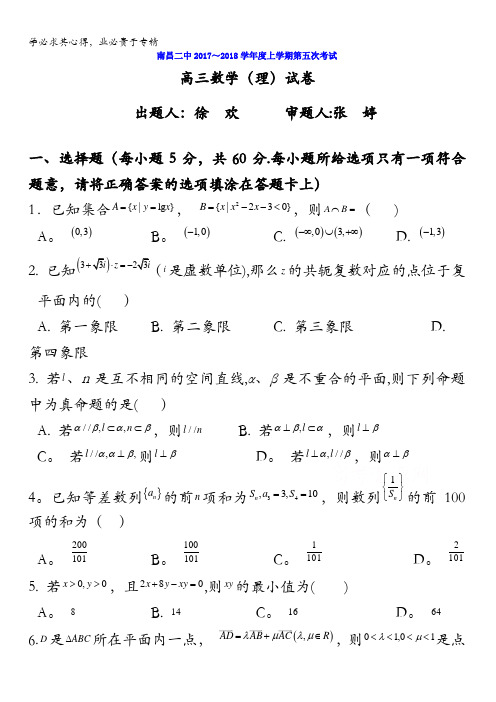 学必求其心得，业必贵于专精
南昌二中2017～2018学年度上学期第五次考试
高三数学（理）试卷
出题人：徐 欢 审题人:张 婷
一、选择题（每小题5分，共60分.每小题所给选项只有一项符合
题意，请将正确答案的选项填涂在答题卡上）
1．已知集合A={x|y=lgx}， B={x|x²-2x-3<0}，则A∩B=（ ）
A。 (0,3) B。 (-1,0) C. (-∞,0)∪(3,+∞) D. (-1,3)
2. 已知(3+√3i)·z=-2√3i（i是虚数单位),那么z的共轭复数对应的点位于复
平面内的( ）
A. 第一象限 B. 第二象限 C. 第三象限 D.
第四象限
3. 若l、n是互不相同的空间直线,α、β是不重合的平面,则下列命题
中为真命题的是( ）
A. 若α//β,l⊂α,n⊂β，则l//n B. 若α⊥β,l⊂α，则l⊥β
C。 若l//α,α⊥β,则l⊥β D。 若l⊥α,l//β，则α⊥β
4。已知等差数列{aₙ}的前n项和为Sₙ,a₃=3,S₄=10，则数列{1/Sₙ}的前100
项的和为（ ）
A。 200/101 B。 100/101 C。 1/101 D。 2/101
5. 若x>0,y>0，且2x+8y-xy=0,则xy的最小值为( )
A。 8 B. 14 C。 16 D。 64
6.D是ΔABC所在平面内一点， AD=λAB+μAC(λ,μ∈R)，则0<λ<1,0<μ<1是点